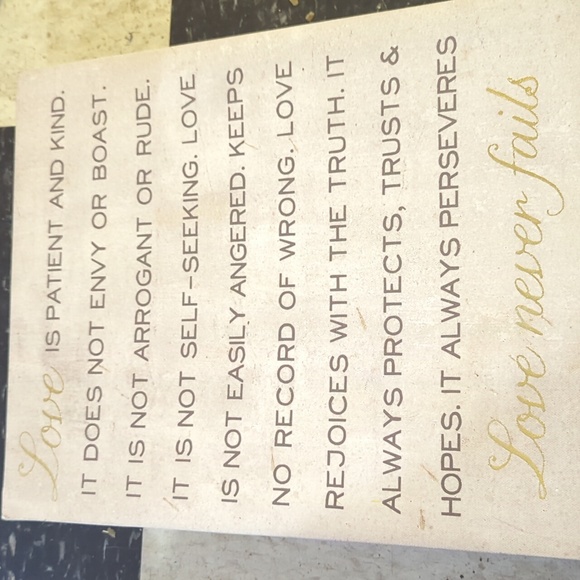 Love IS PATIENT AND KIND.
IT DOES NOT ENVY OR BOAST.
IT IS NOT ARROGANT OR RUDE.
IT IS NOT SELF-SEEKING. LOVE
IS NOT EASILY ANGERED. KEEPS
NO RECORD OF WRONG. LOVE
REJOICES WITH THE TRUTH. IT
ALWAYS PROTECTS, TRUSTS &
HOPES. IT ALWAYS PERSEVERES
Love never fails